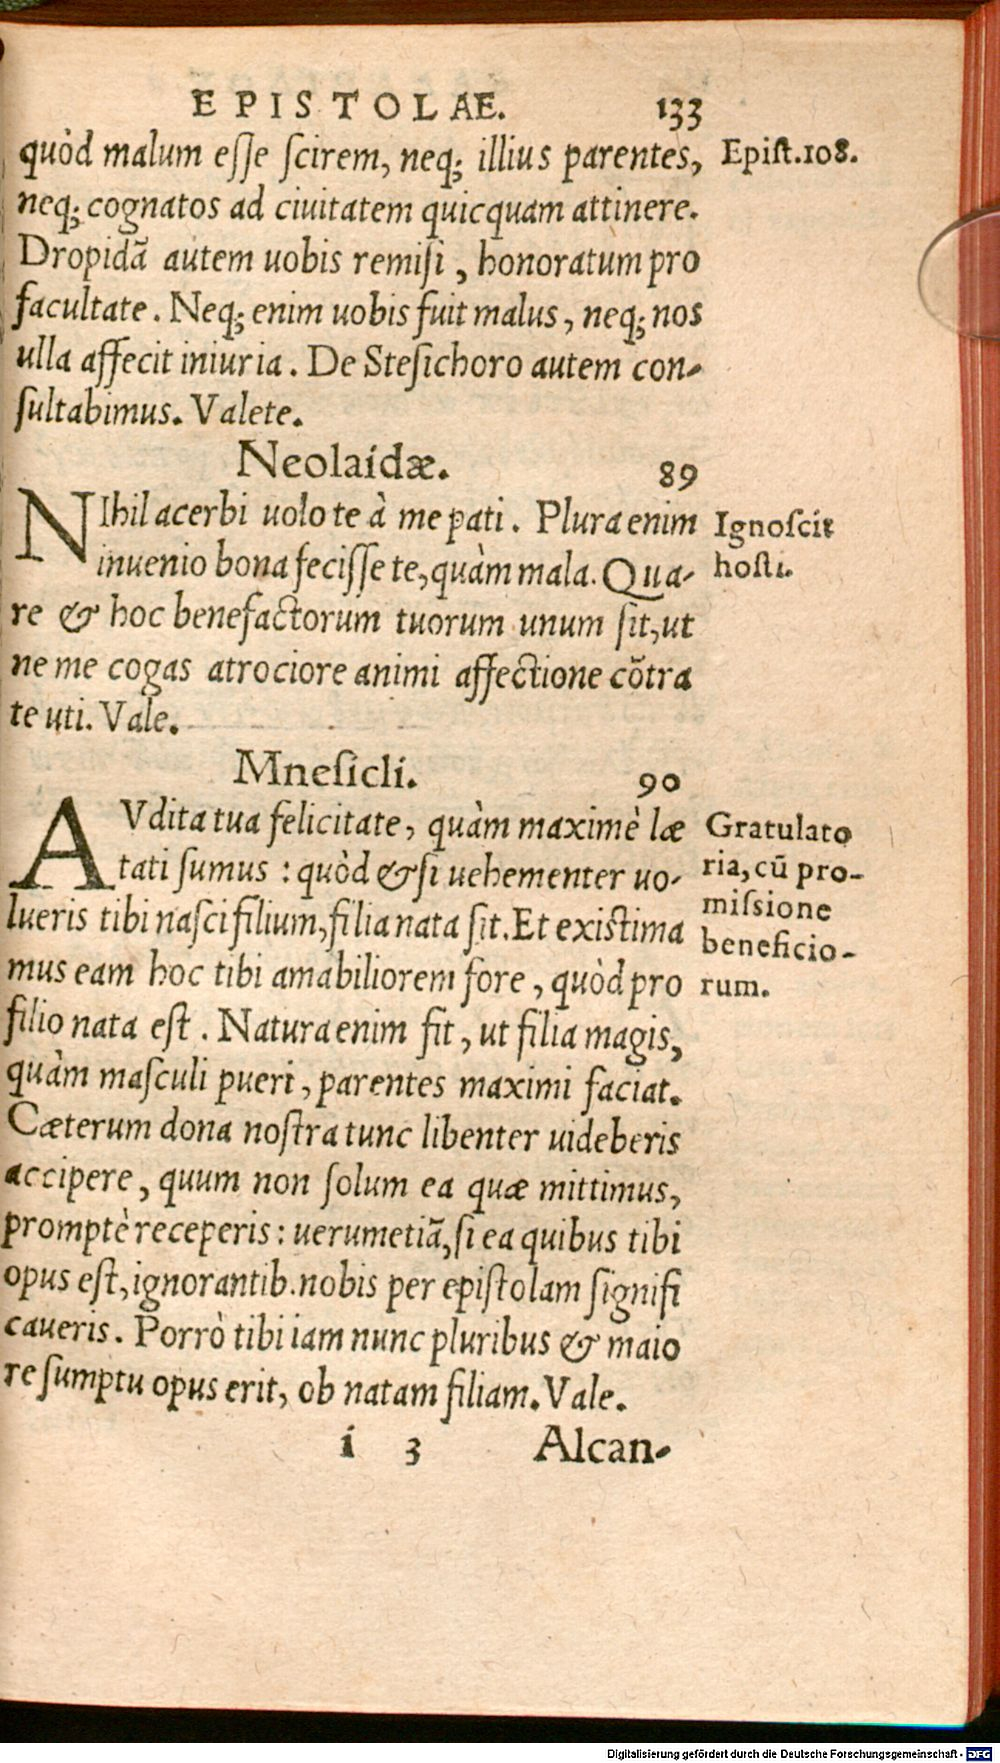 EPISTOLAE. 133
quòd malum eſſe ſcirem, neq; illius parentes,
Epiſt.108.
neq; cognatos ad ciuitatem quicquam attinere.
Dropidã autem uobis remiſi, honoratum pro
facultate. Neq; enim uobis fuit malus, neq; nos
ulla affecit iniuria. De Steſichoro autem con-
ſultabimus. Valete.
Neolaidæ. 89
NIhil acerbi uolo te à me pati. Plura enim
inuenio bona feciſſe te, quàm mala. Qua-
re & hoc benefactorum tuorum unum ſit, ut
ne me cogas atrociore animi affectione cõtra
te uti. Vale.
Ignoſcit
hoſti.
Mneſicli. 90
AVdita tua felicitate, quàm maximè læ
tati ſumus: quòd & ſi uehementer uo-
lueris tibi naſci filium, filia nata ſit. Et exiſtima
mus eam hoc tibi amabiliorem fore, quòd pro
filio nata eſt. Natura enim fit, ut filia magis,
quàm maſculi pueri, parentes maximi faciat.
Cæterum dona noſtra tunc libenter uideberis
accipere, quum non ſolum ea quæ mittimus,
promptè receperis: uerumetiã, ſi ea quibus tibi
opus eſt, ignorantib. nobis per epiſtolam ſignifi
caueris. Porrò tibi iam nunc pluribus & maio
re ſumptu opus erit, ob natam filiam. Vale.
Gratulato
ria, cũ pro-
miſsione
beneficio-
rum.
i 3 Alcan-
Digitalisierung gefördert durch die Deutsche Forschungsgemeinschaft - DFG